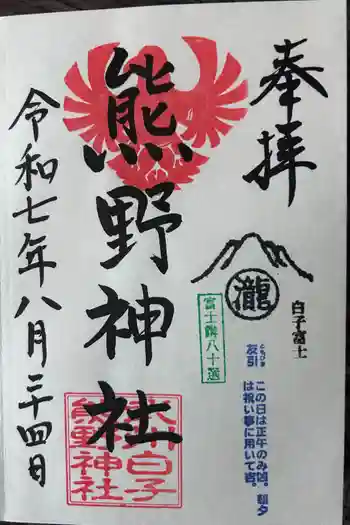 奉拝
瀧
白子富士
富士講八十選
ともびき
友引
この日は正午のみ凶。朝夕
は祝い事に用いて吉。
熊野神社
大和白子
熊野神社
令和七年八月二十四日